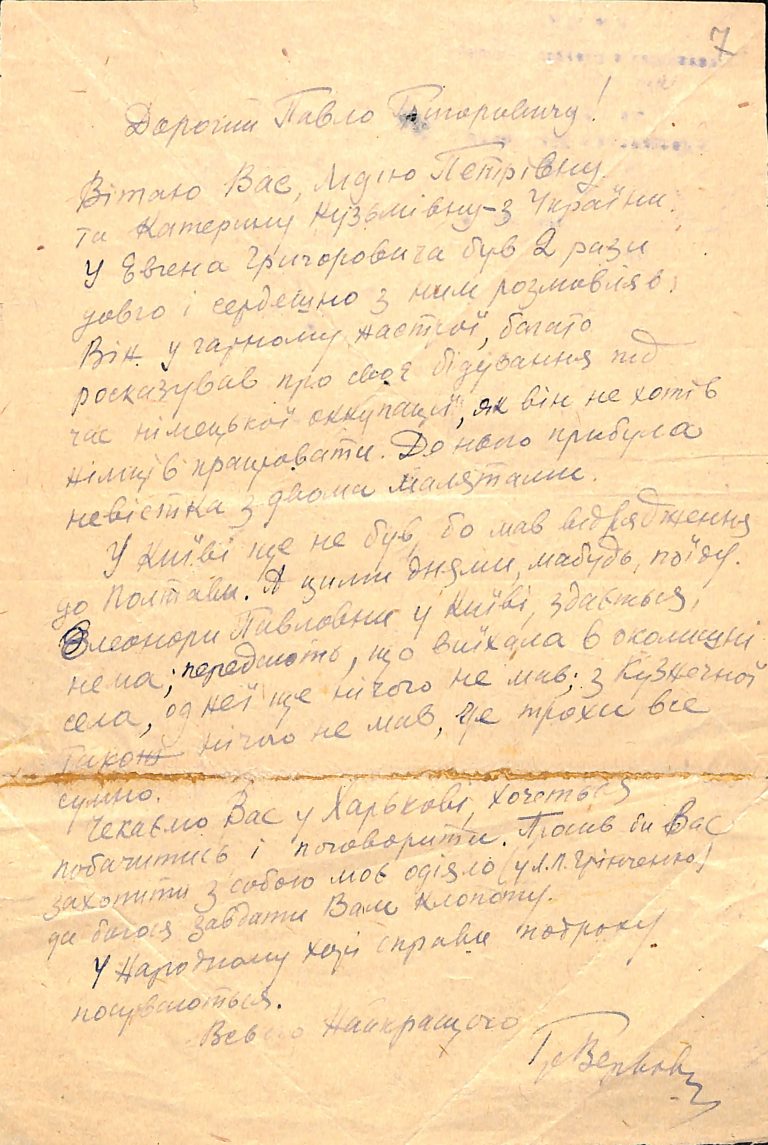 7
Дорогий Павло Григоровичу!
Вітаю Вас, Лідію Петрівну
та Катерину Кузьмівну – з України.
У Евгена Григоровича був 2 рази
довго і сердешно з ним розмовляв;
Він у гарному настрої, багато
росказував про своє бідування під
час німецької оккупації, як він не хотів
німців працювати. До нього прибула
невістка з двома малятами.
У Київі ще не був, бо мав відрядження
до Полтави. А цими днями, мабудь, поїду.
Элеонори Павловни у Київі, здається,
нема; передають, що виїхала в околишні
села, од неї ще нічого не мав; з Кузнечної
також нічого не мав, це трохи все
сумно.
Чекаємо Вас у Харькові, хочеться
побачитись і поговорити. Просив би Вас
захопити з собою моє одіяло (у Л.П. Грінченко)
да боюся завдати Вам клопоту.
У Народному хорі справи потроху
посуваються.
Всього Найкращого